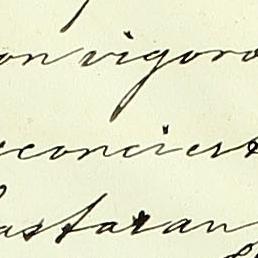 on vigoro
econciert
astaran